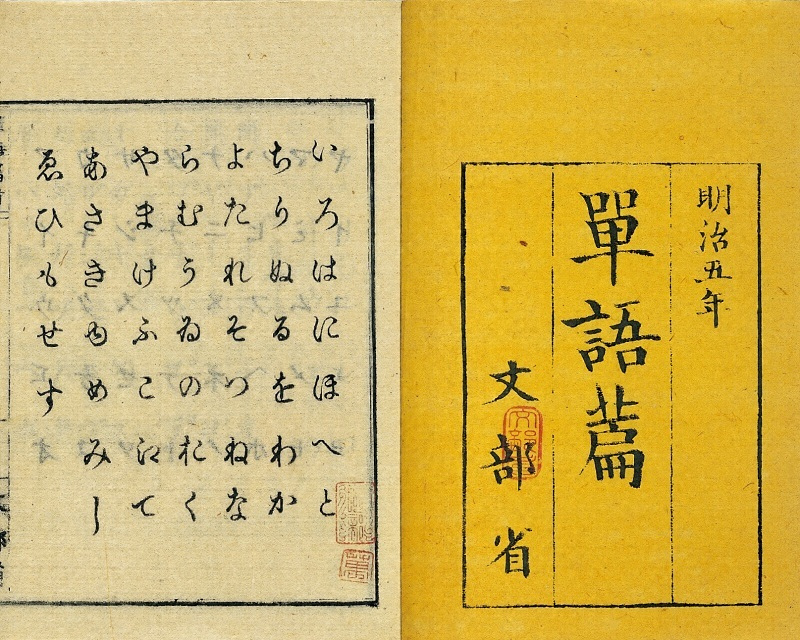 明治五年
單語篇
文部省
いろはにほへと
ちりぬるをわか
よたれそつねな
らむうゐのおく
やまけふこえて
あさきゆめみし
ゑひもせす